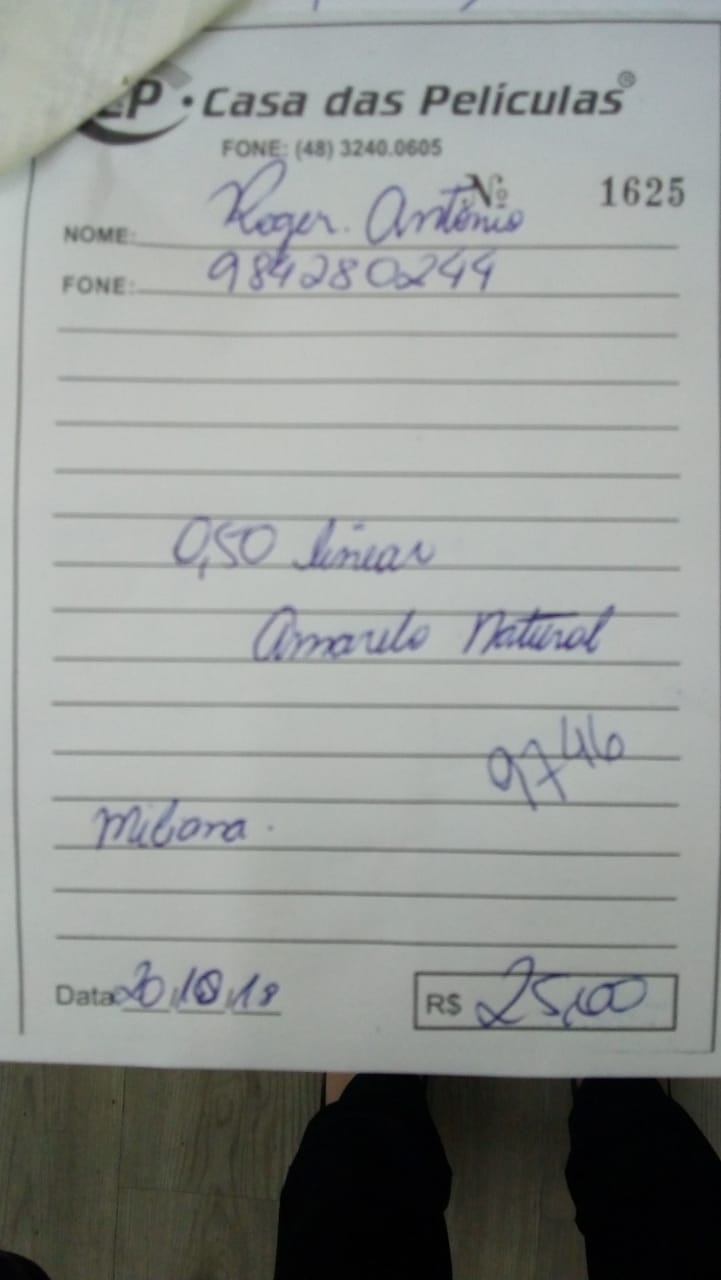 CP · Casa das Películas®
FONE: (48) 3240.0605
Nº 1625
NOME: Roger. Antônio
FONE: 984280244
0,50 linear
Amarelo Natural
9746
Milana.
Data 20/10/18 R$ 25,00